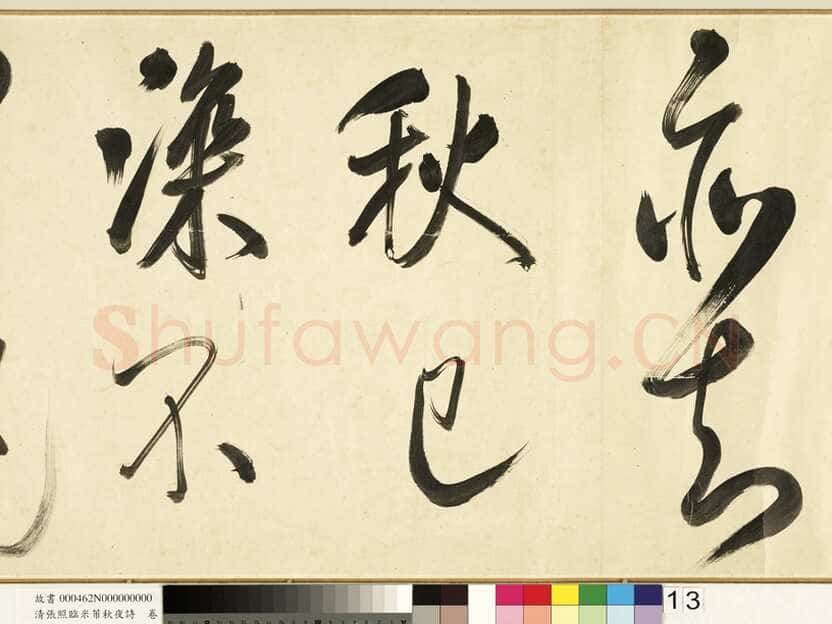 亦知
秋已
深不
Shufawang.CN
故書 000462N000000000
清張照臨米芾秋夜詩 卷
13